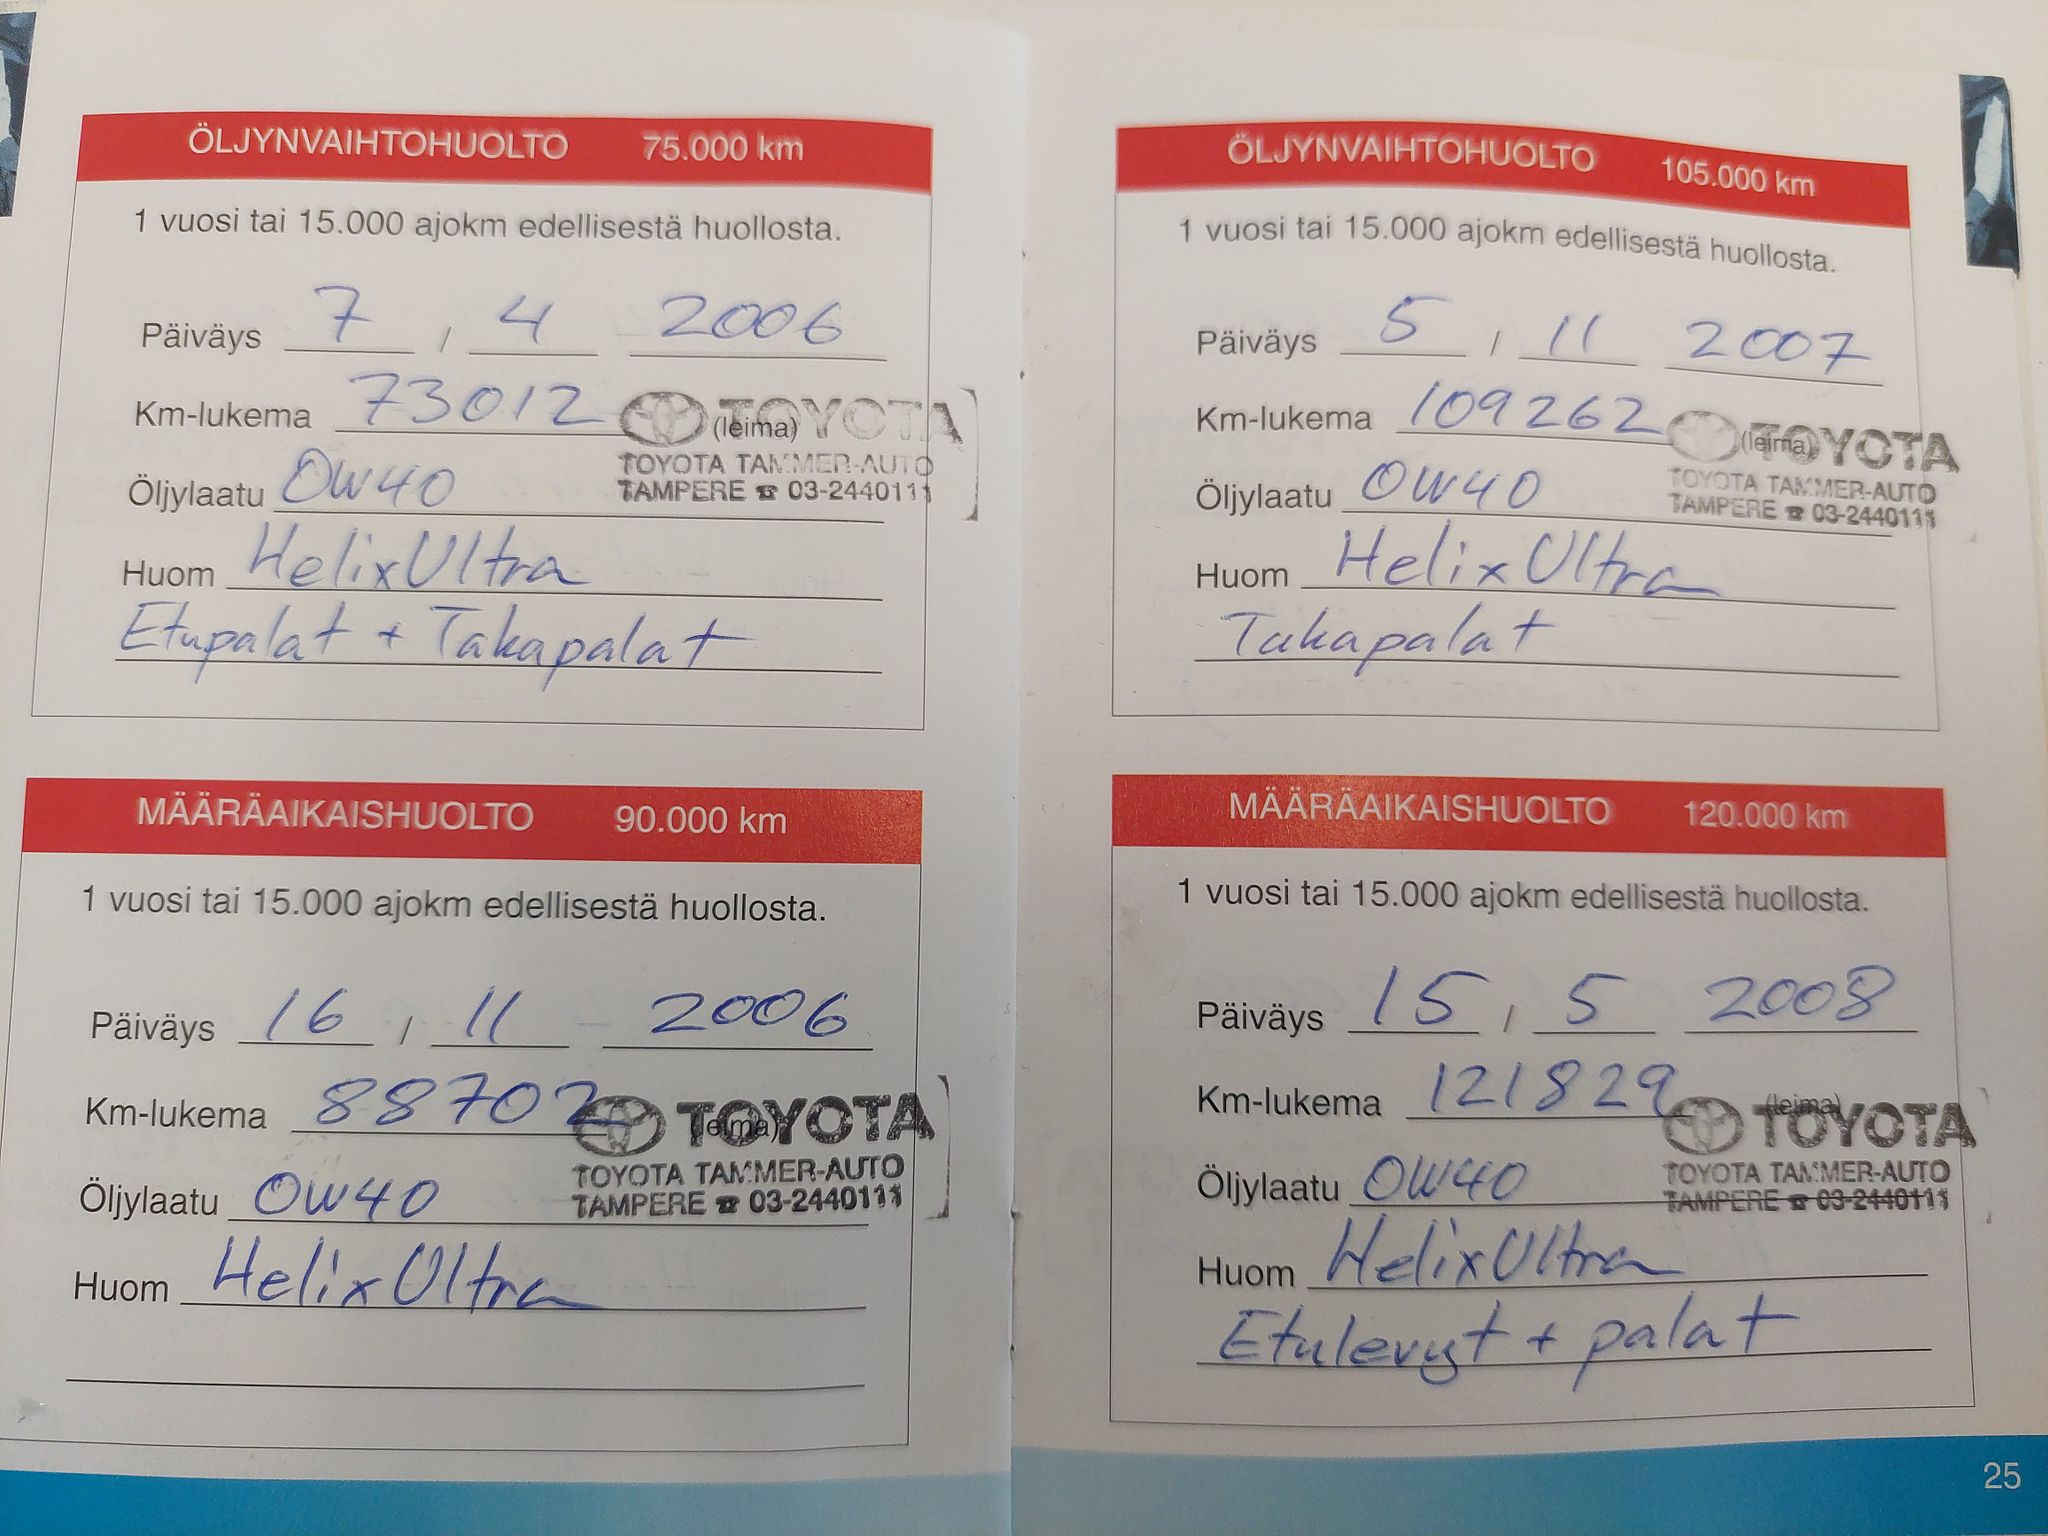 ÖLJYNVAIHTOHUOLTO 75.000 km
1 vuosi tai 15.000 ajokm edellisestä huollosta.
Päiväys 7 / 4 2006
Km-lukema 73012 (leima) TOYOTA
TOYOTA TAMMER-AUTO
Öljylaatu 0W40 TAMPERE ☎ 03-2440111
Huom Helix Ultra
Etupalat + Takapalat
MÄÄRÄAIKAISHUOLTO 90.000 km
1 vuosi tai 15.000 ajokm edellisestä huollosta.
Päiväys 16 / 11 2006
Km-lukema 88702 (leima) TOYOTA
TOYOTA TAMMER-AUTO
Öljylaatu 0W40 TAMPERE ☎ 03-2440111
Huom Helix Ultra
ÖLJYNVAIHTOHUOLTO 105.000 km
1 vuosi tai 15.000 ajokm edellisestä huollosta.
Päiväys 5 / 11 2007
Km-lukema 109262 (leima) TOYOTA
TOYOTA TAMMER-AUTO
Öljylaatu 0W40 TAMPERE ☎ 03-2440111
Huom Helix Ultra
Takapalat
MÄÄRÄAIKAISHUOLTO 120.000 km
1 vuosi tai 15.000 ajokm edellisestä huollosta.
Päiväys 15 / 5 2008
Km-lukema 121829 (leima) TOYOTA
TOYOTA TAMMER-AUTO
Öljylaatu 0W40 TAMPERE ☎ 03-2440111
Huom Helix Ultra
Etulevyt + palat
25